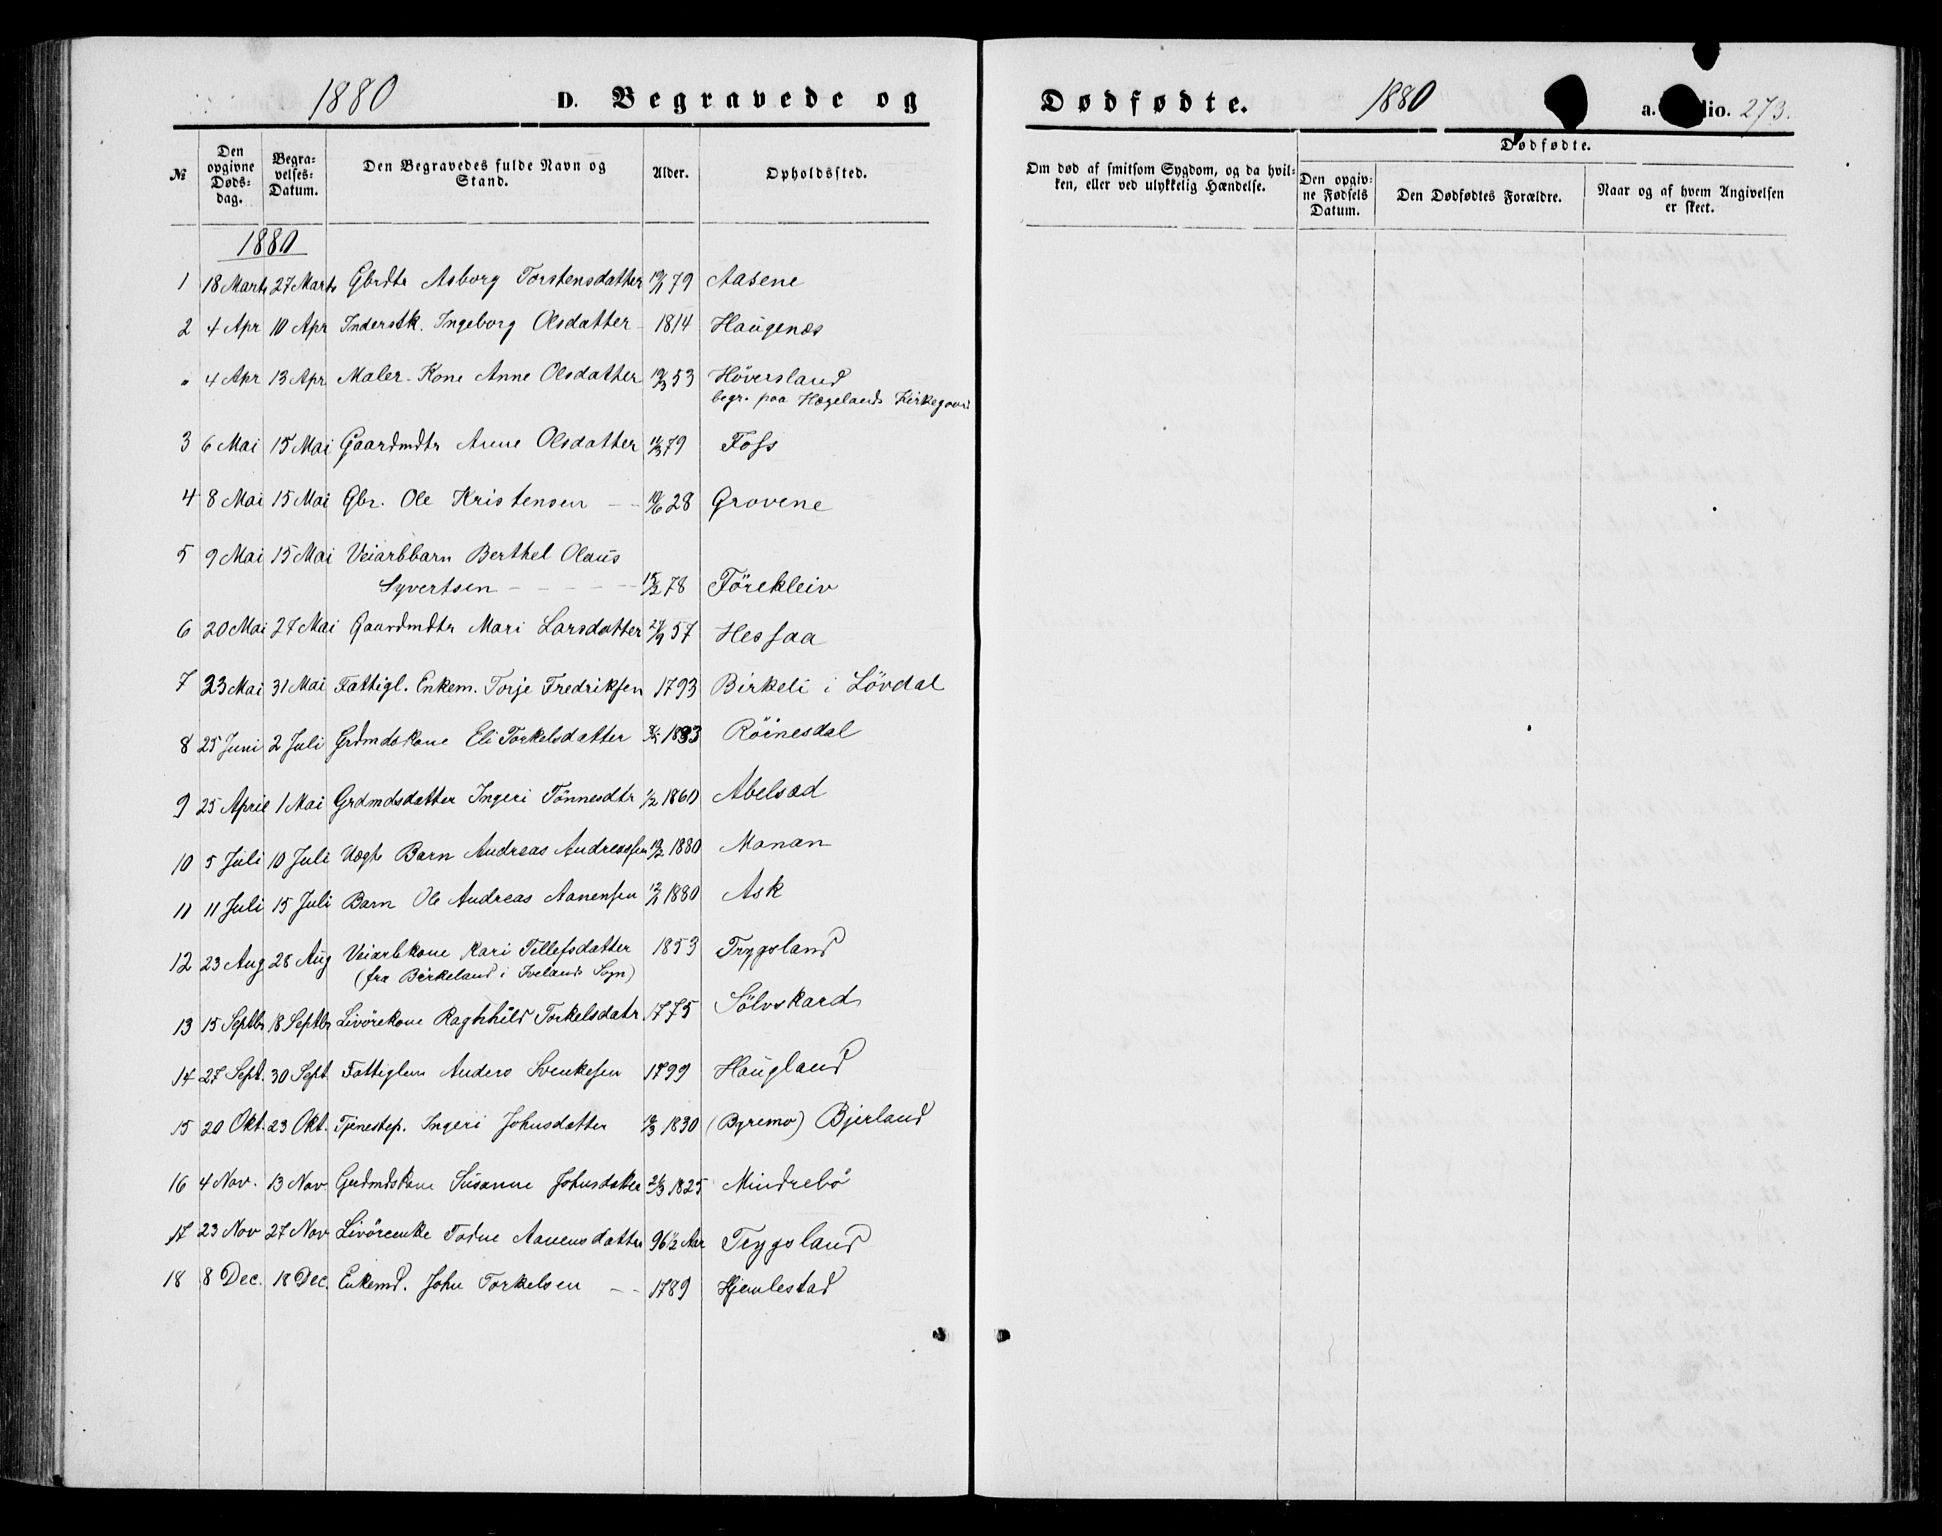 1880 D. Begravede og
№ Den opgivne Døds-dag. Begra-velses-Datum. Den Begravedes fulde Navn og Stand. Alder. Opholdssted.
1880
1 18 Marts 27 Marts Gbrdtr Asborg Torstensdatter 79 Aasene
2 4 Apr 10 Apr Inderstk. Ingeborg Olsdatter - 1814 Haugenæs
" 4 Apr 13 Apr Maler-Kone Anne Olsdatter 53 Höversland
begr. paa Hægelands Kirkegaard
3 6 Mai 15 Mai Gaardmdtr Anne Olsdatter 79 Foss
4 8 Mai 15 Mai Gbr. Ole Kristensen - - 19/6 28 Grovene
5 9 Mai 15 Mai Veiarbbarn Berthel Olaus
Syvertsen - - - - 15/2 78 Förekleiv
6 20 Mai 27 Mai Gaardmdtr Mari Larsdatter 27/9 57 Hessaa
7 23 Mai 31 Mai Fattigl. Enkem. Torje Fredriksen 1793 Birkeli i Lövdal
8 25 Juni 2 Juli Grdmdskone Eli Torkelsdatter 1833 Röinesdal
9 25 April 1 Mai Grdmdsdatter Ingeri Tönnesdtr 1/2 1860 Abelsæd
10 5 Juli 10 Juli Uægt Barn Andreas Andreassen 1880 Manan
11 11 Juli 15 Juli Barn Ole Andreas Aanensen 1880 Ask
12 23 Aug 28 Aug Veiarbkone Kari Tellefsdatter 1853 Trygsland
(fra Birkeland i Ivelands Sogn)
13 15 Septbr 18 Septbr Livörekone Raghhild Torkelsdatr 1775 Sölvskard
14 27 Sept. 30 Sept Fattiglem Anders Svenkesen 1799 Haugland
15 20 Okt. 23 Okt. Tjenestep. Ingeri Johnsdatter 1830 (Byremo) Bjerland
16 4 Nov. 13 Nov Grdmdskone Susanne Johnsdatter 1825 Mindrebö
17 23 Nov 27 Nov Livöreenke Todne Aanensdatter 96½ Aar Trygsland
18 8 Dec. 18 Dec. Enkemd. John Torkelsen - - 1789 Hjemlestad
Dødfødte. 1880 a. 273.
Om død af smitsom Sygdom, og da hvil-ken, eller ved ulykkelig Hændelse.
Dødfødte.
Den opgiv-ne Fødsels Datum. Den Dødfødtes Forældre. Naar og af hvem Angivelsen er skeet.